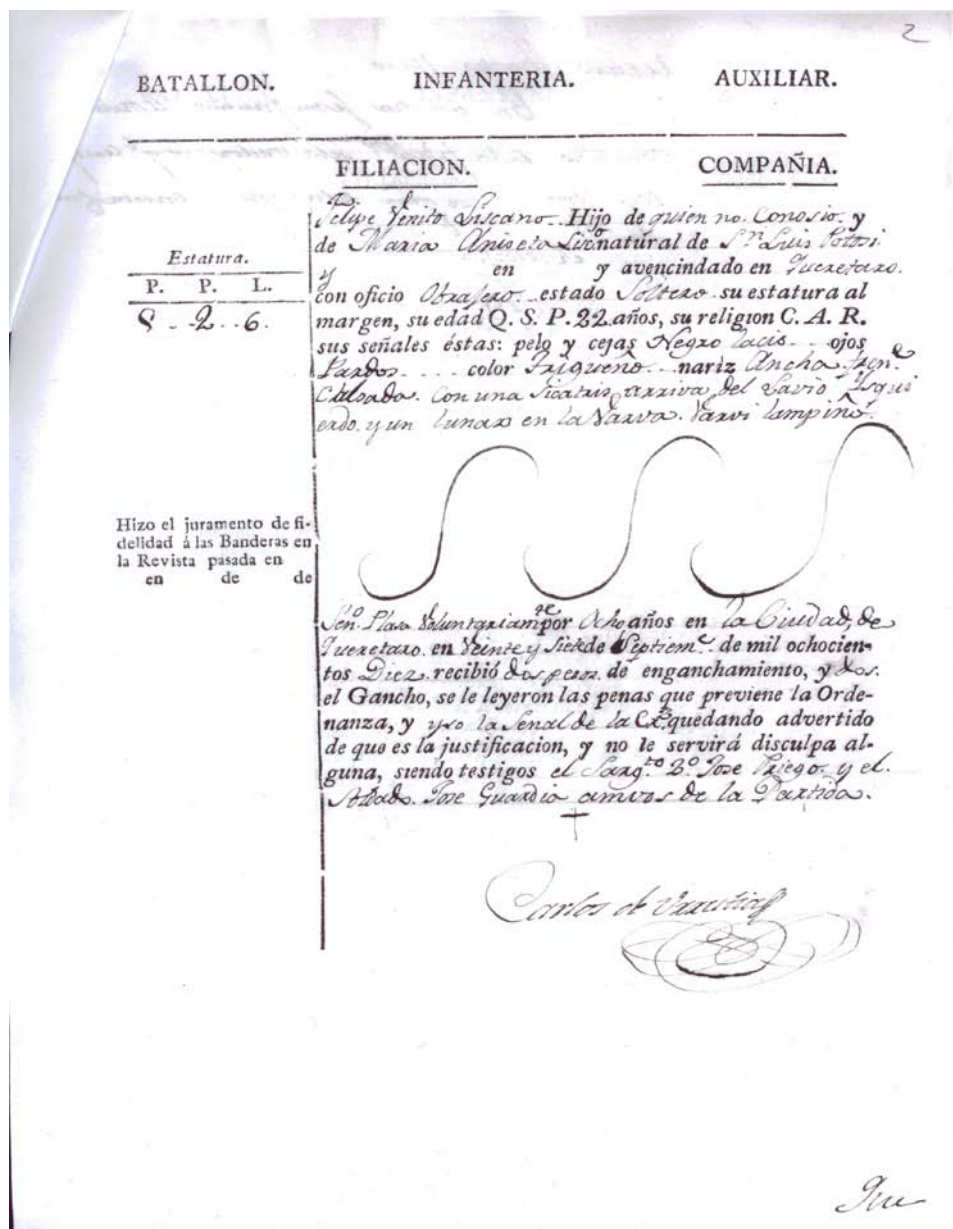 2
BATALLON. INFANTERIA. AUXILIAR.
FILIACION. COMPAÑIA.
Estatura.
P. P. L.
5 - 2 - 6.
Felipe Venito Liscano. Hijo de quien no. Conosio. y
de Maria Aniseta Liscno natural de Sn. Luis Potosi.
y en y avencindado en Queretaro.
con oficio Obrajero. estado Soltero su estatura al
margen, su edad Q. S. P. 22 años, su religion C. A. R.
sus señales éstas: pelo y cejas Negro lacio ojos
Pardos color Trigueño nariz Ancha fren.e
Calsada. Con una sicatris arriva del Lavio Isqui
erdo. y un lunar en la Varva. Varvi lampiño.
Hizo el juramento de fi-
delidad á las Banderas en
la Revista pasada en
en de de
Sen.o Plasa Voluntariam.te por Ocho años en la Ciudad, de
Queretaro. en Veinte y Siete de Septiem.e de mil ochocien-
tos Diez. recibió dos pesos. de enganchamiento, y dos.
el Gancho, se le leyeron las penas que previene la Orde-
nanza, y yso la Señal de la Cr.z quedando advertido
de que es la justificacion, y no le servirá disculpa al-
guna, siendo testigos el Sarg.to 2.o Jose Priego. y el.
Soldado. Jose Guardia amvos de la Partida.
Carlos de Urrutia